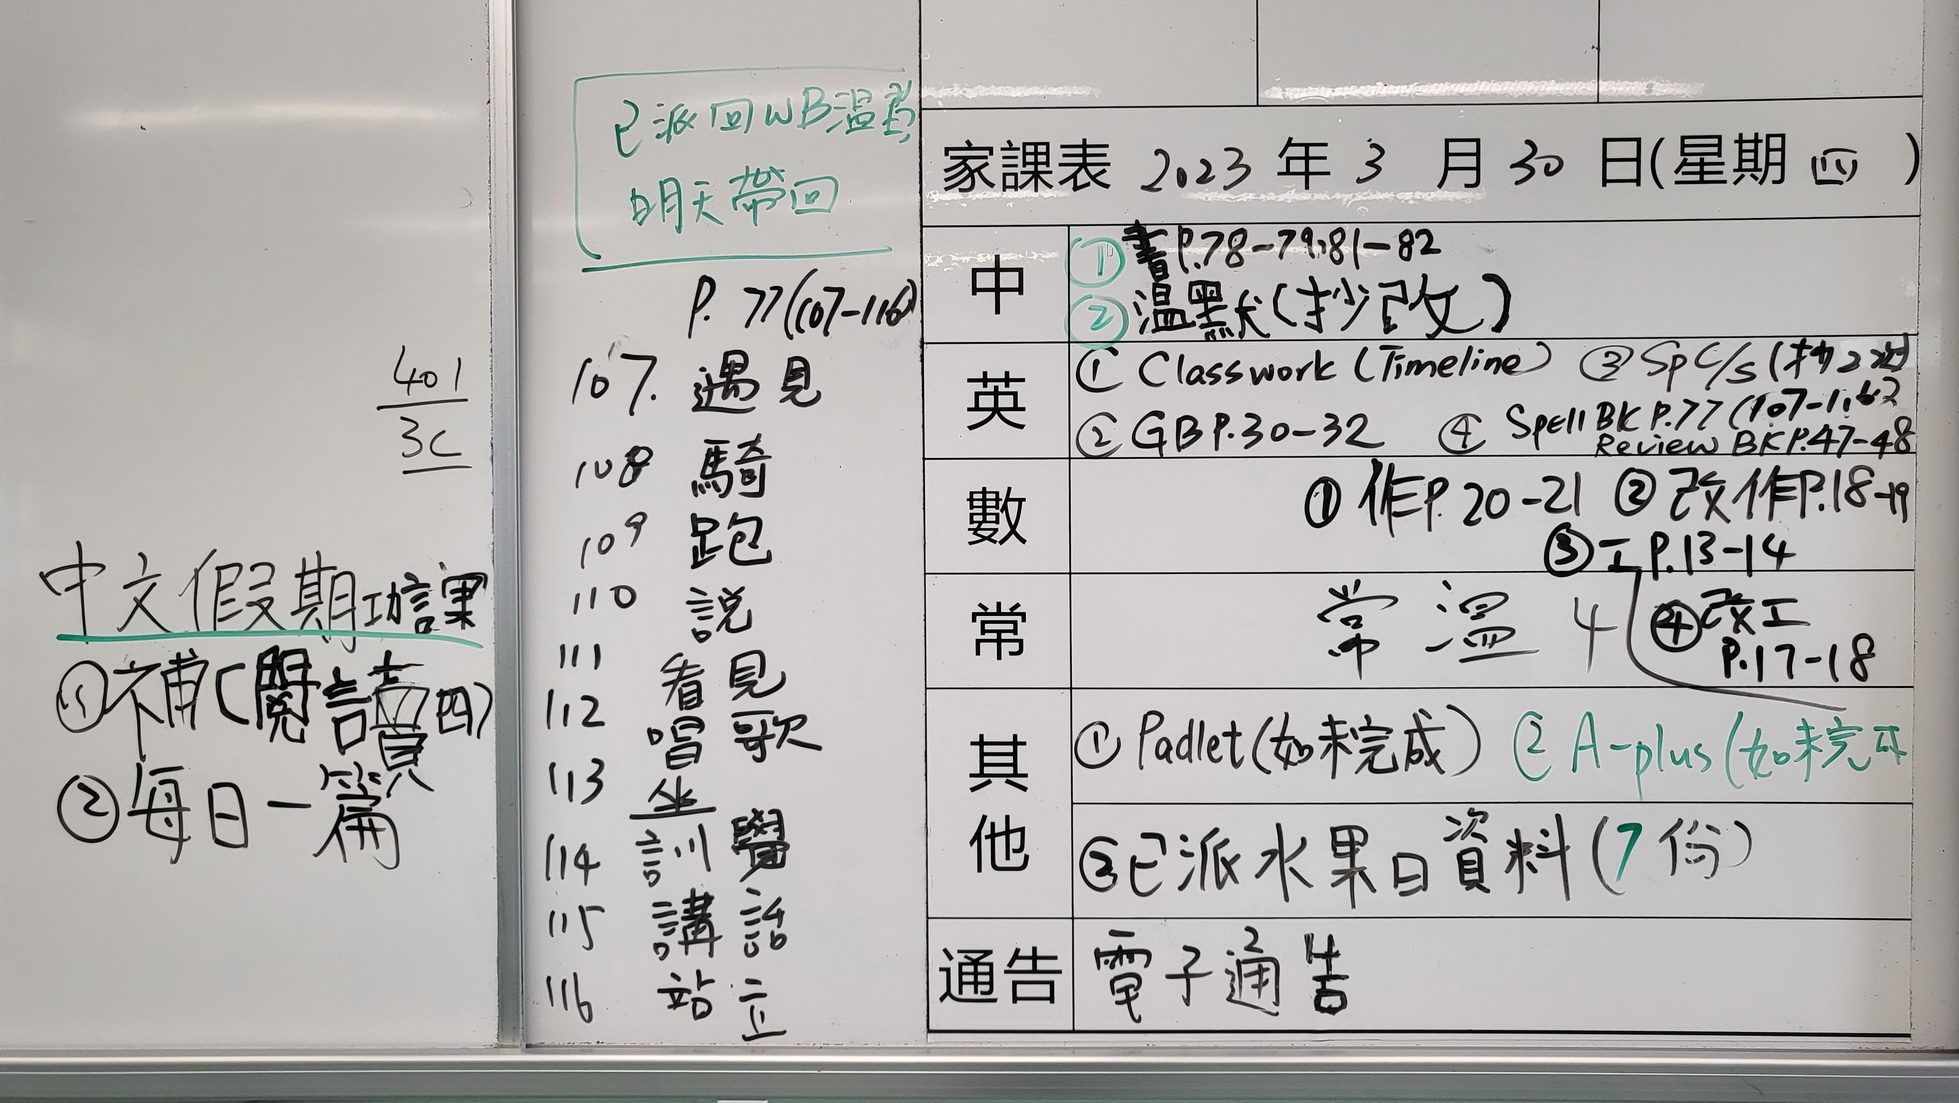 401
3C
中文假期功課
①補(閱讀四)
②每日一篇
已派回WB温習
明天帶回
P. 77(107-116)
107. 遇見
108 騎
109 跑
110 説
111 看見
112 唱歌
113 坐
114 訓覺
115 講話
116 站立
家課表 2023 年 3 月 30 日(星期 四 )
中
①書P.78-79,81-82
②温默(抄改)
英
① Classwork (Timeline) ③ Sp C/S (抄2次
② GB P.30-32 ④ Spell BK P.77 (107-116)
Review BK P.47-48
數
① 作P.20-21 ② 改作P.18-19
③ 工P.13-14
④改工
P.17-18
常
常温 4
其他
① Padlet(如未完成) ② A-plus(如未完成
③已派水果日資料(7份)
通告
電子通告